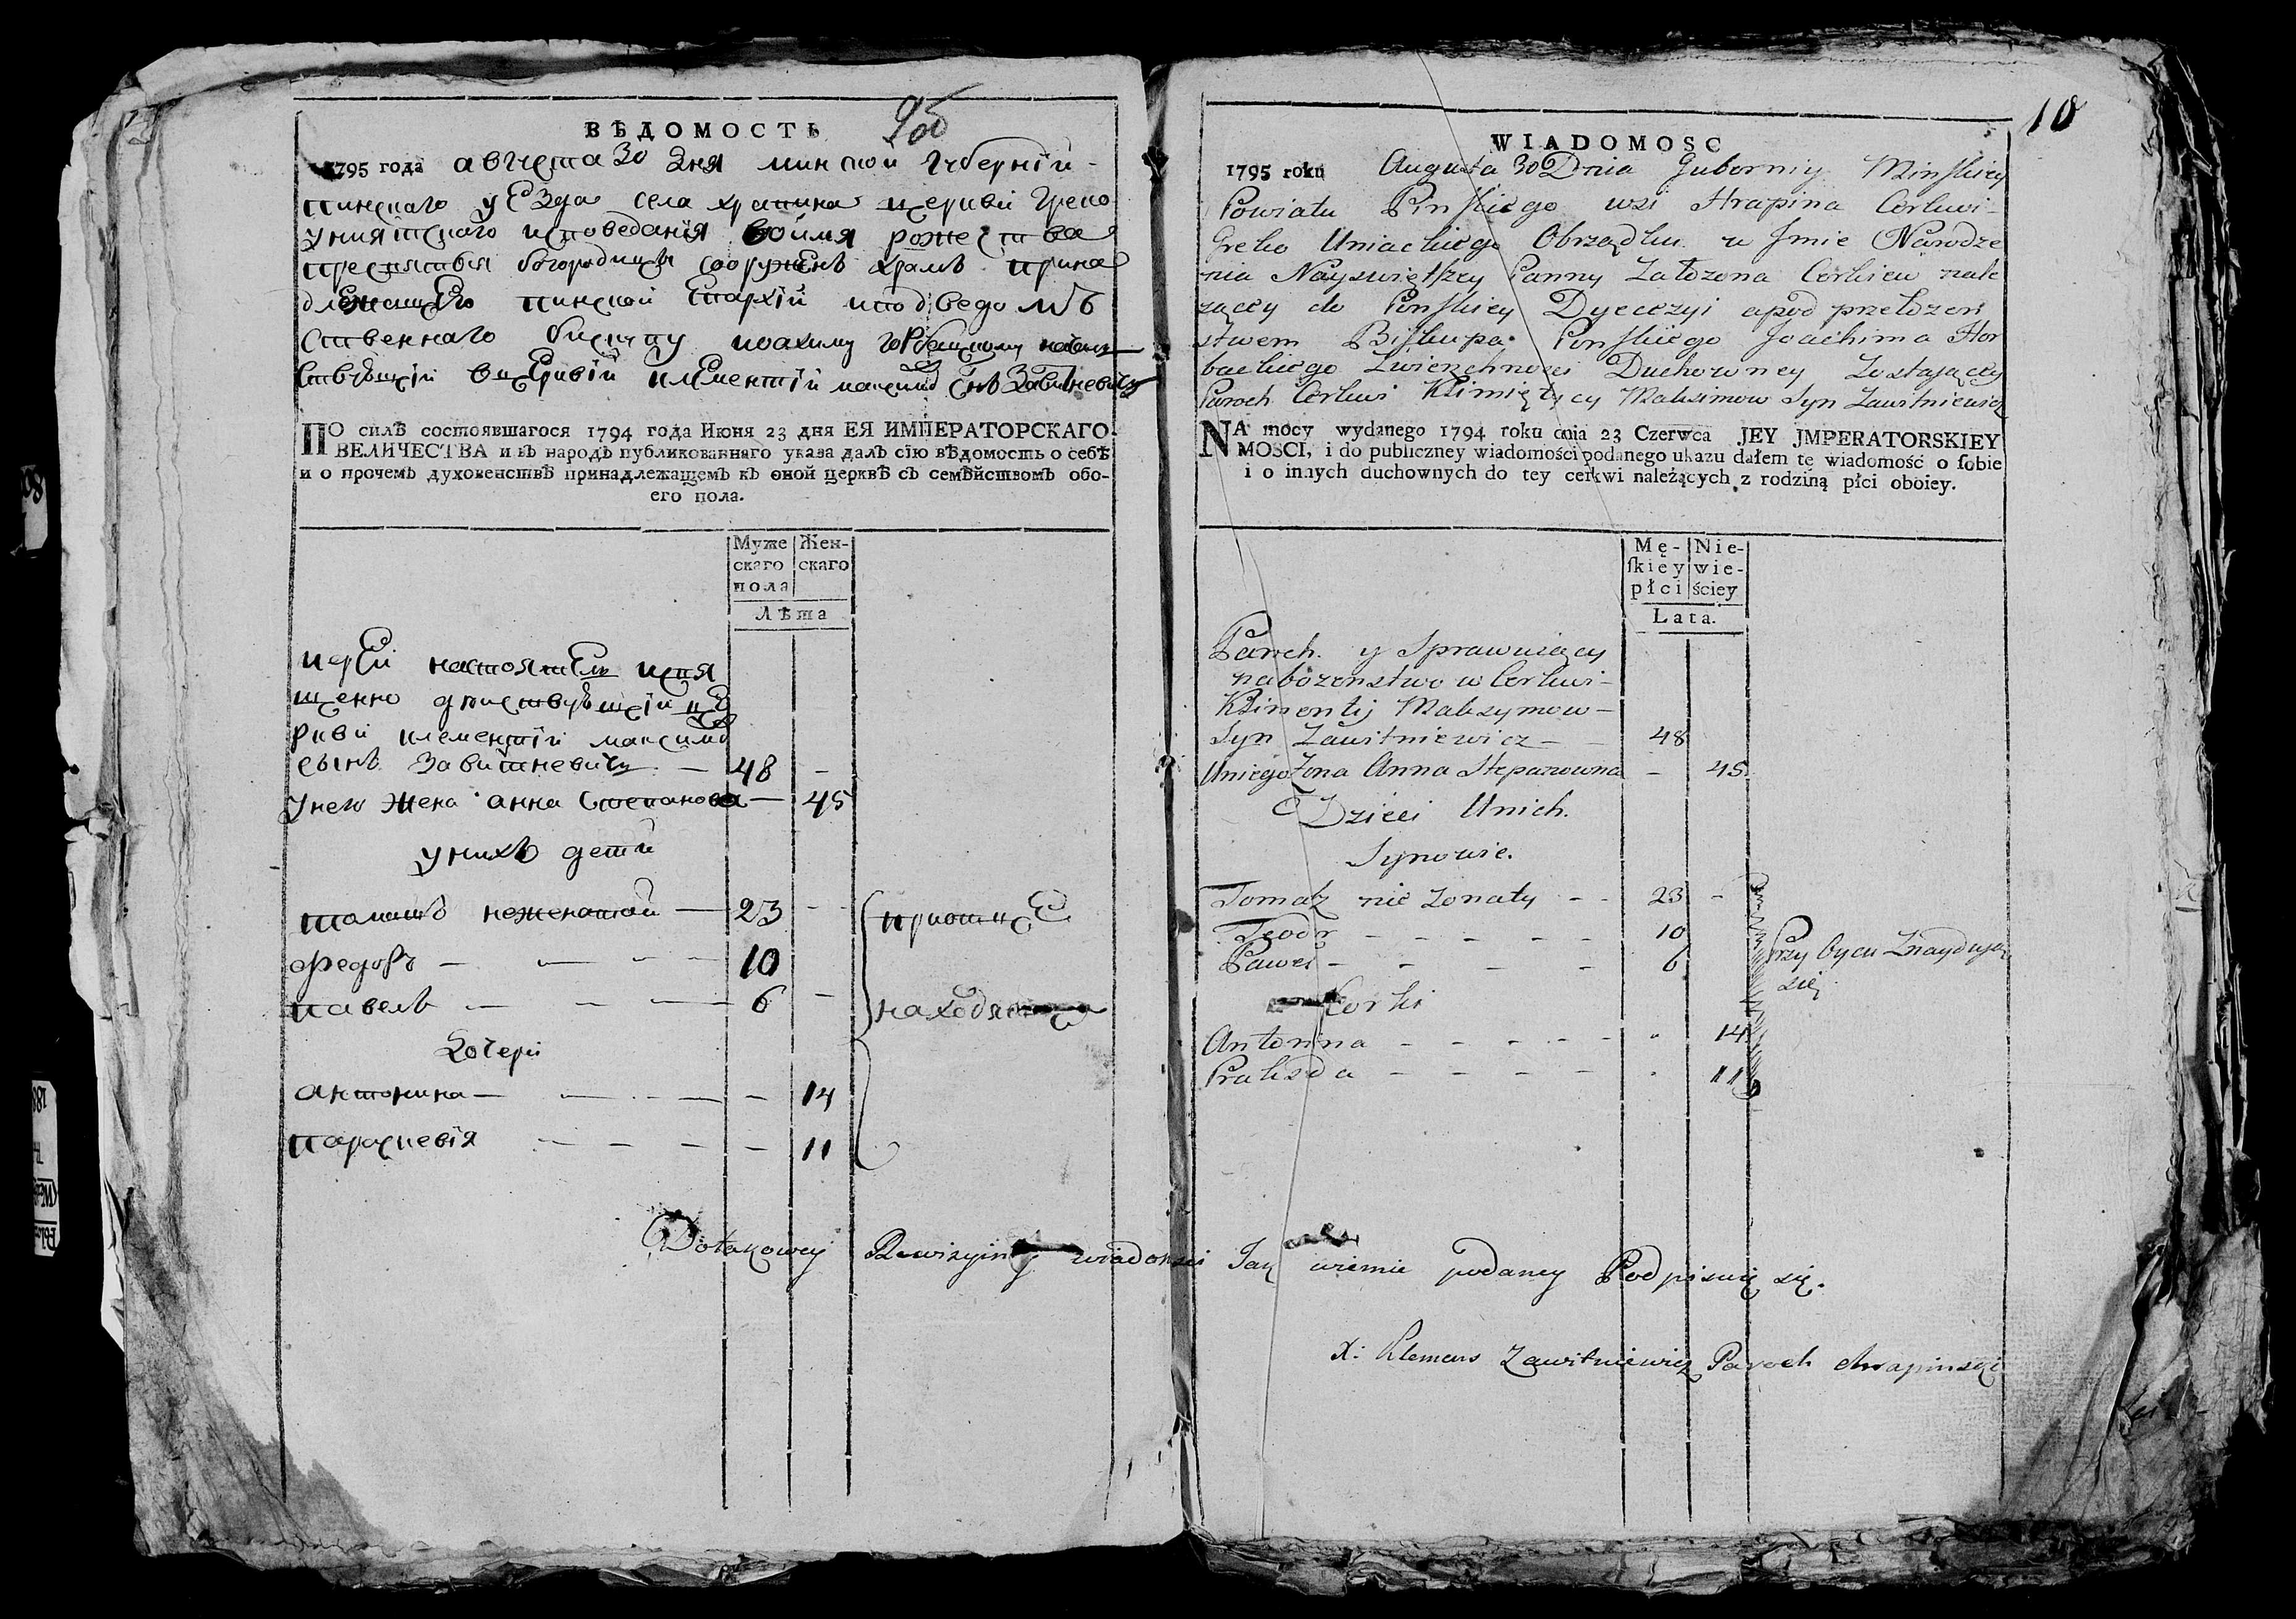 9об
ВѢДОМОСТЬ
1795 года августа 30 дня минской губерніи
пинскаго уезда села храпина церкви греко
униятскаго исповедания во имя рожества
пресвятыя богородицы сооруженъ храмъ прина
длежащего пинской епархіи и под ведомъ
ственнаго бискупу иоахиму горбацкому
в церкви клементій максимов снъ Завитневичъ
ПО силѣ состоявшагося 1794 года Июня 23 дня ЕЯ ИМПЕРАТОРСКАГО
ВЕЛИЧЕСТВА и въ народъ публикованнаго указа далъ сїю вѣдомость о себѣ
и о прочемъ духовенствѣ принадлежащемъ къ оной церквѣ съ семѣйствомъ обо-
его пола.
Муже Жен-
скаго скаго
пола
Лѣта
иерей настоятель и свя
щенно действующій це
ркви клементій максимов
сынъ Завитневичъ — 48 —
у него жена анна степанова — 45
у нихъ дети
томашъ неженатой — 23 - при отце
федоръ — — — 10
павелъ — — — 6 - находятся
дочери
антонина — — — — 14
параскевія — — — — 11
10
WIADOMOSC
1795 roku Augusta 30 Dnia Guberniy Minskiey
Powiatu Pinskiego wsi Hrapina Cerkwi
Greko Uniackiego Obrządku w Jmie Narodze
nia Nayswiętszey Panny Założona Cerkiew nale
zącey do Pinskiey Dyecezyi a pod przełożen
stwem Biskupa Pinskiego Joachima Hor
backiego Zwierzchnosci Duchowney Zostaiącey
Paroch Cerkwi Klimiętyey Maksimow Syn Zawitniewicz
NA mocy wydanego 1794 roku dnia 23 Czerwca JEY JMPERATORSKIEY
MOSCI, i do publiczney wiadomości podanego ukazu dałem tę wiadomość o sobie
i o innych duchownych do tey cerkwi należących z rodziną płci oboiey.
Mę- Nie-
skiey wie-
płci ściey
Lata.
Paroch y Sprawuiący
nabożenstwo w Cerkwi
Klimentij Maksymow
Syn Zawitniewicz — — 48
U niego Zona Anna Stepanowna — 45
Dzieci U nich.
Synowie.
Tomasz nie Zonaty - - 23 -
Teodr - - - - - 10
Paweł - - - - 6 Przy Oycu Znayduią
się
Corki
Antonina - - - - - 14
Prakseda - - - - 11
Do takowey Rewizyiney wiadomosci Jak wiernie podaney Podpisuię się.
X: Klemens Zawitniewicz Paroch Chrapinski